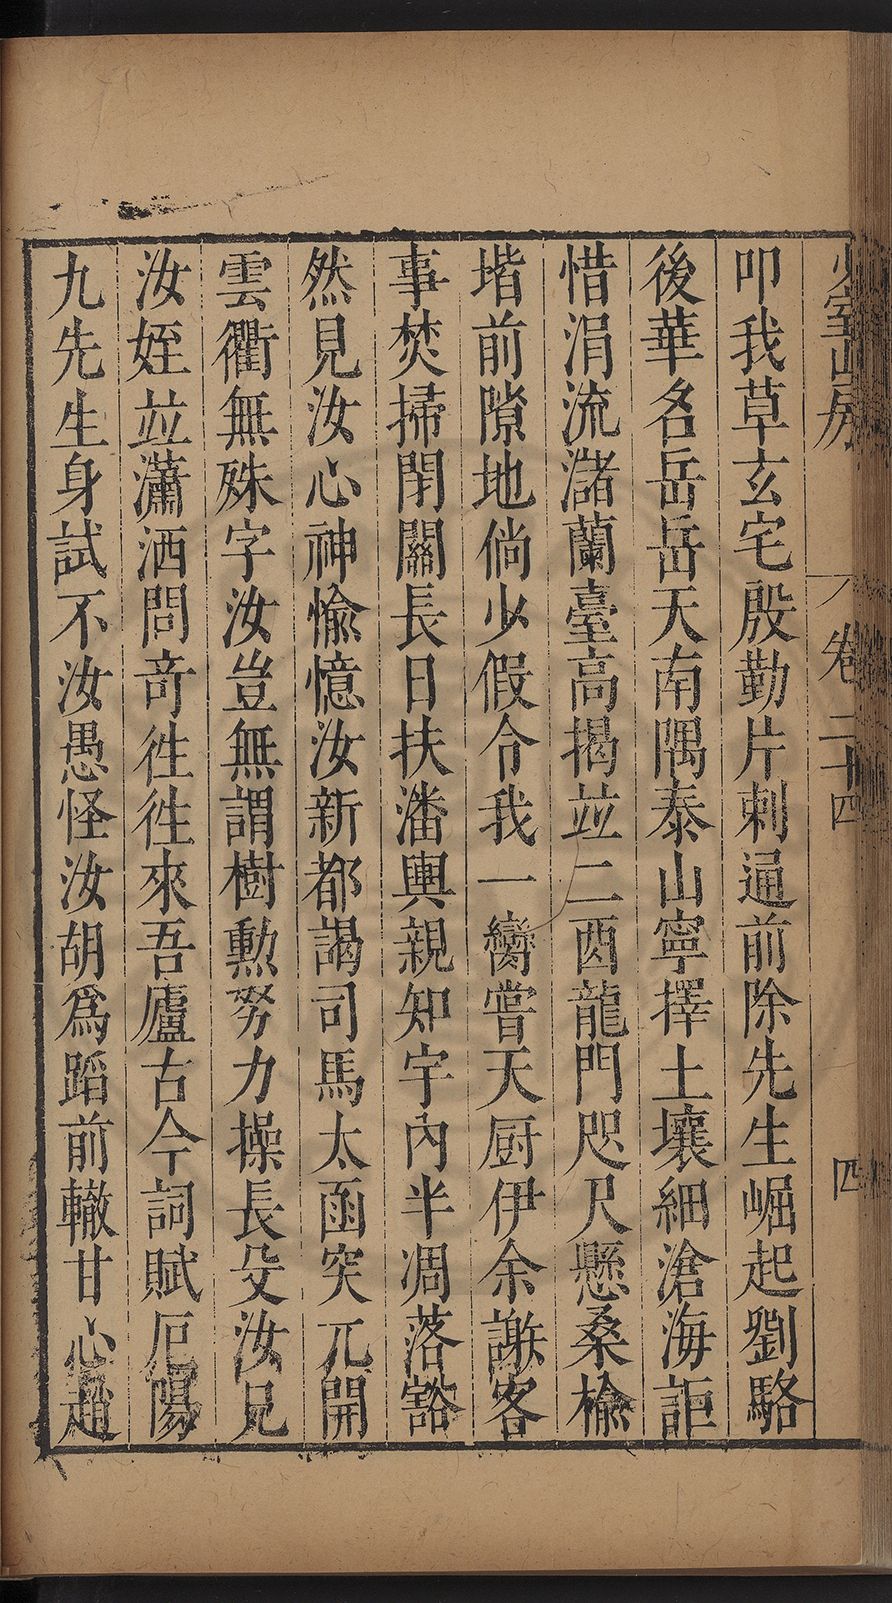 少室山房
卷二十四
四
叩我草玄宅殷勤片刺通前除先生崛起劉駱
後華名岳岳天南隅泰山寧擇土壤細滄海詎
惜涓流瀦蘭臺高揭並二酉龍門咫尺懸桑榆
堦前隙地倘少假令我一臠嘗天厨伊余謝客
事焚掃閉關長日扶潘輿親知宇內半凋落豁
然見汝心神愉憶汝新都謁司馬太函突兀開
雲衢無殊字汝豈無謂樹勲努力操長殳汝兄
汝姪並瀟洒問竒徃徃來吾廬古今詞賦厄陽
九先生身試不汝愚怪汝胡爲蹈前轍甘心趨